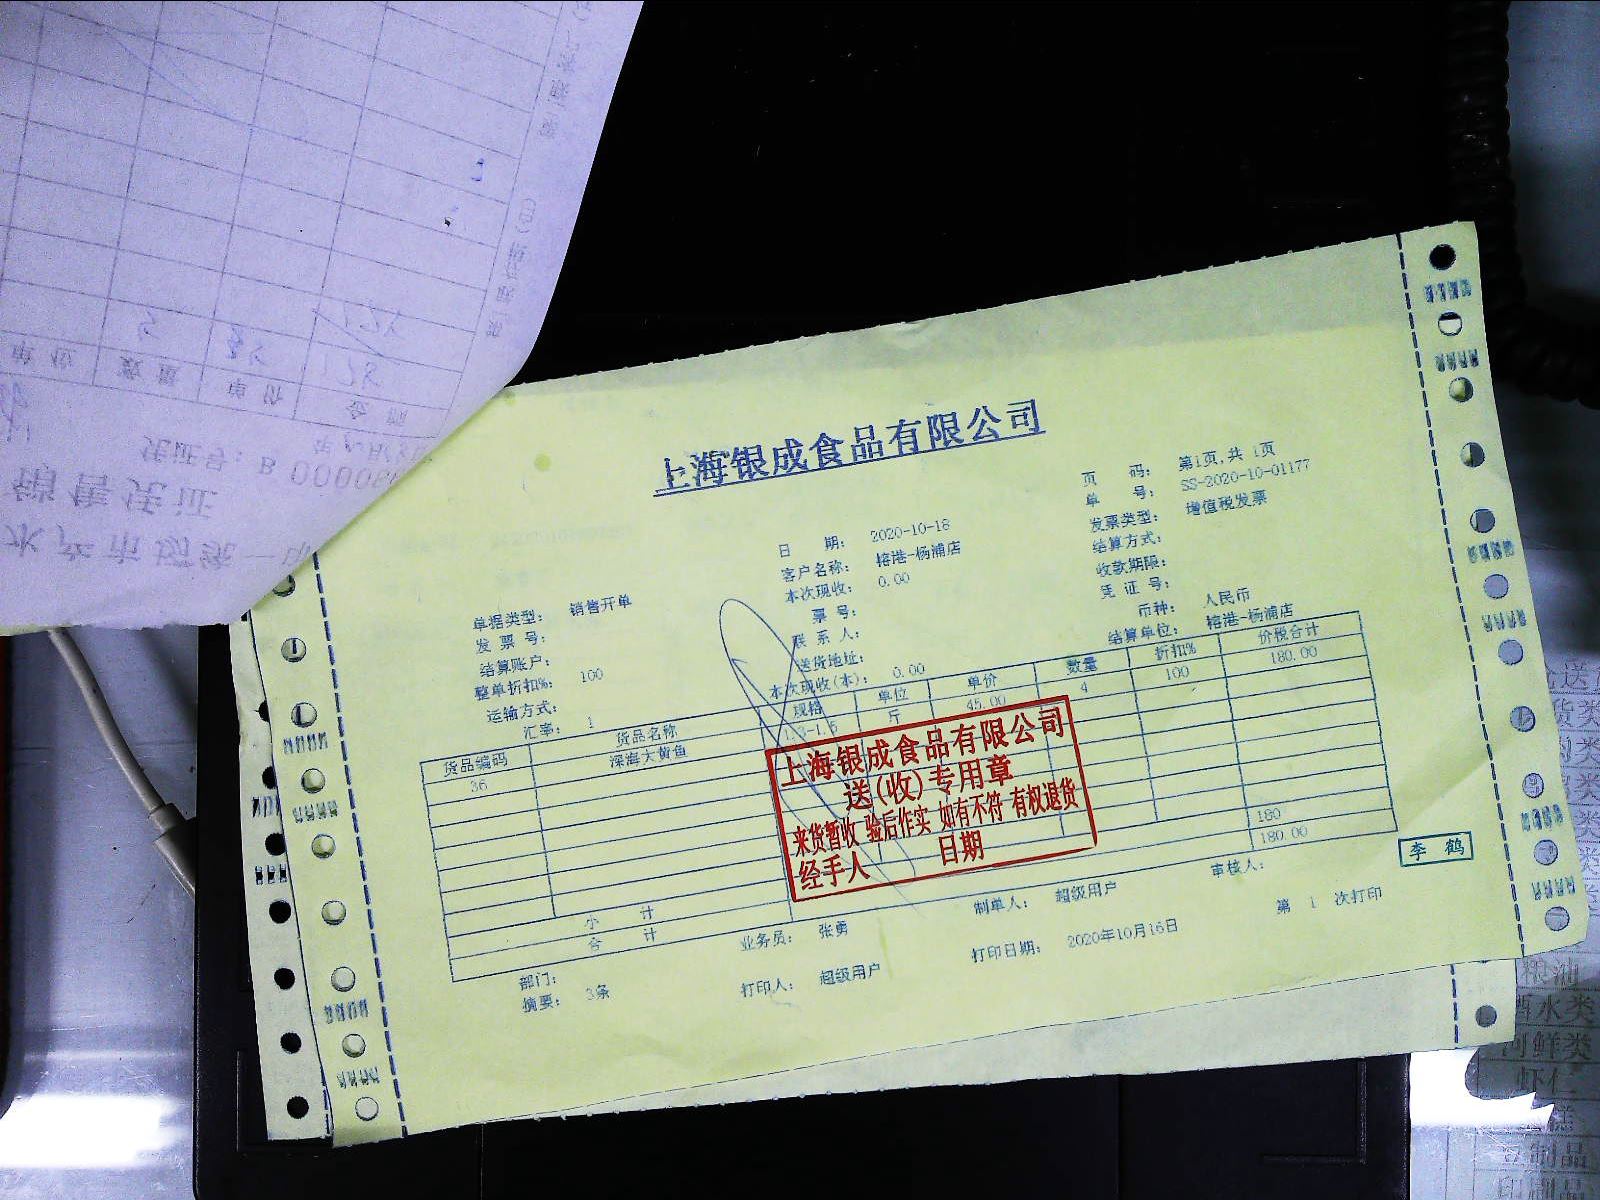 上海银成食品有限公司
页 码: 第1页,共 1页
单 号: SS-2020-10-01177
日 期: 2020-10-18
发票类型: 增值税发票
客户名称: 榕港-杨浦店
结算方式:
本次现收: 0.00
收款期限:
单据类型: 销售开单
票 号:
凭 证 号:
发 票 号:
联 系 人:
币种: 人民币
结算账户:
送货地址:
结算单位: 榕港-杨浦店
整单折扣%: 100
本次现收(本): 0.00
运输方式:
汇率: 1
货品编码 货品名称 规格 单位 单价 数量 折扣% 价税合计
36 深海大黄鱼 1.3-1.5 斤 45.00 4 100 180.00
小 计 180
合 计 180.00
上海银成食品有限公司
送(收)专用章
来货暂收 验后作实 如有不符 有权退货
经手人 日期
李 鹤
部门: 业务员: 张勇 制单人: 超级用户 审核人:
摘要: 3条 打印人: 超级用户 打印日期: 2020年10月16日 第 1 次打印
水产市场统一
销售凭证
凭证号: B
单位 数量 单价 金额
粮油
酒水类
河鲜类
虾仁